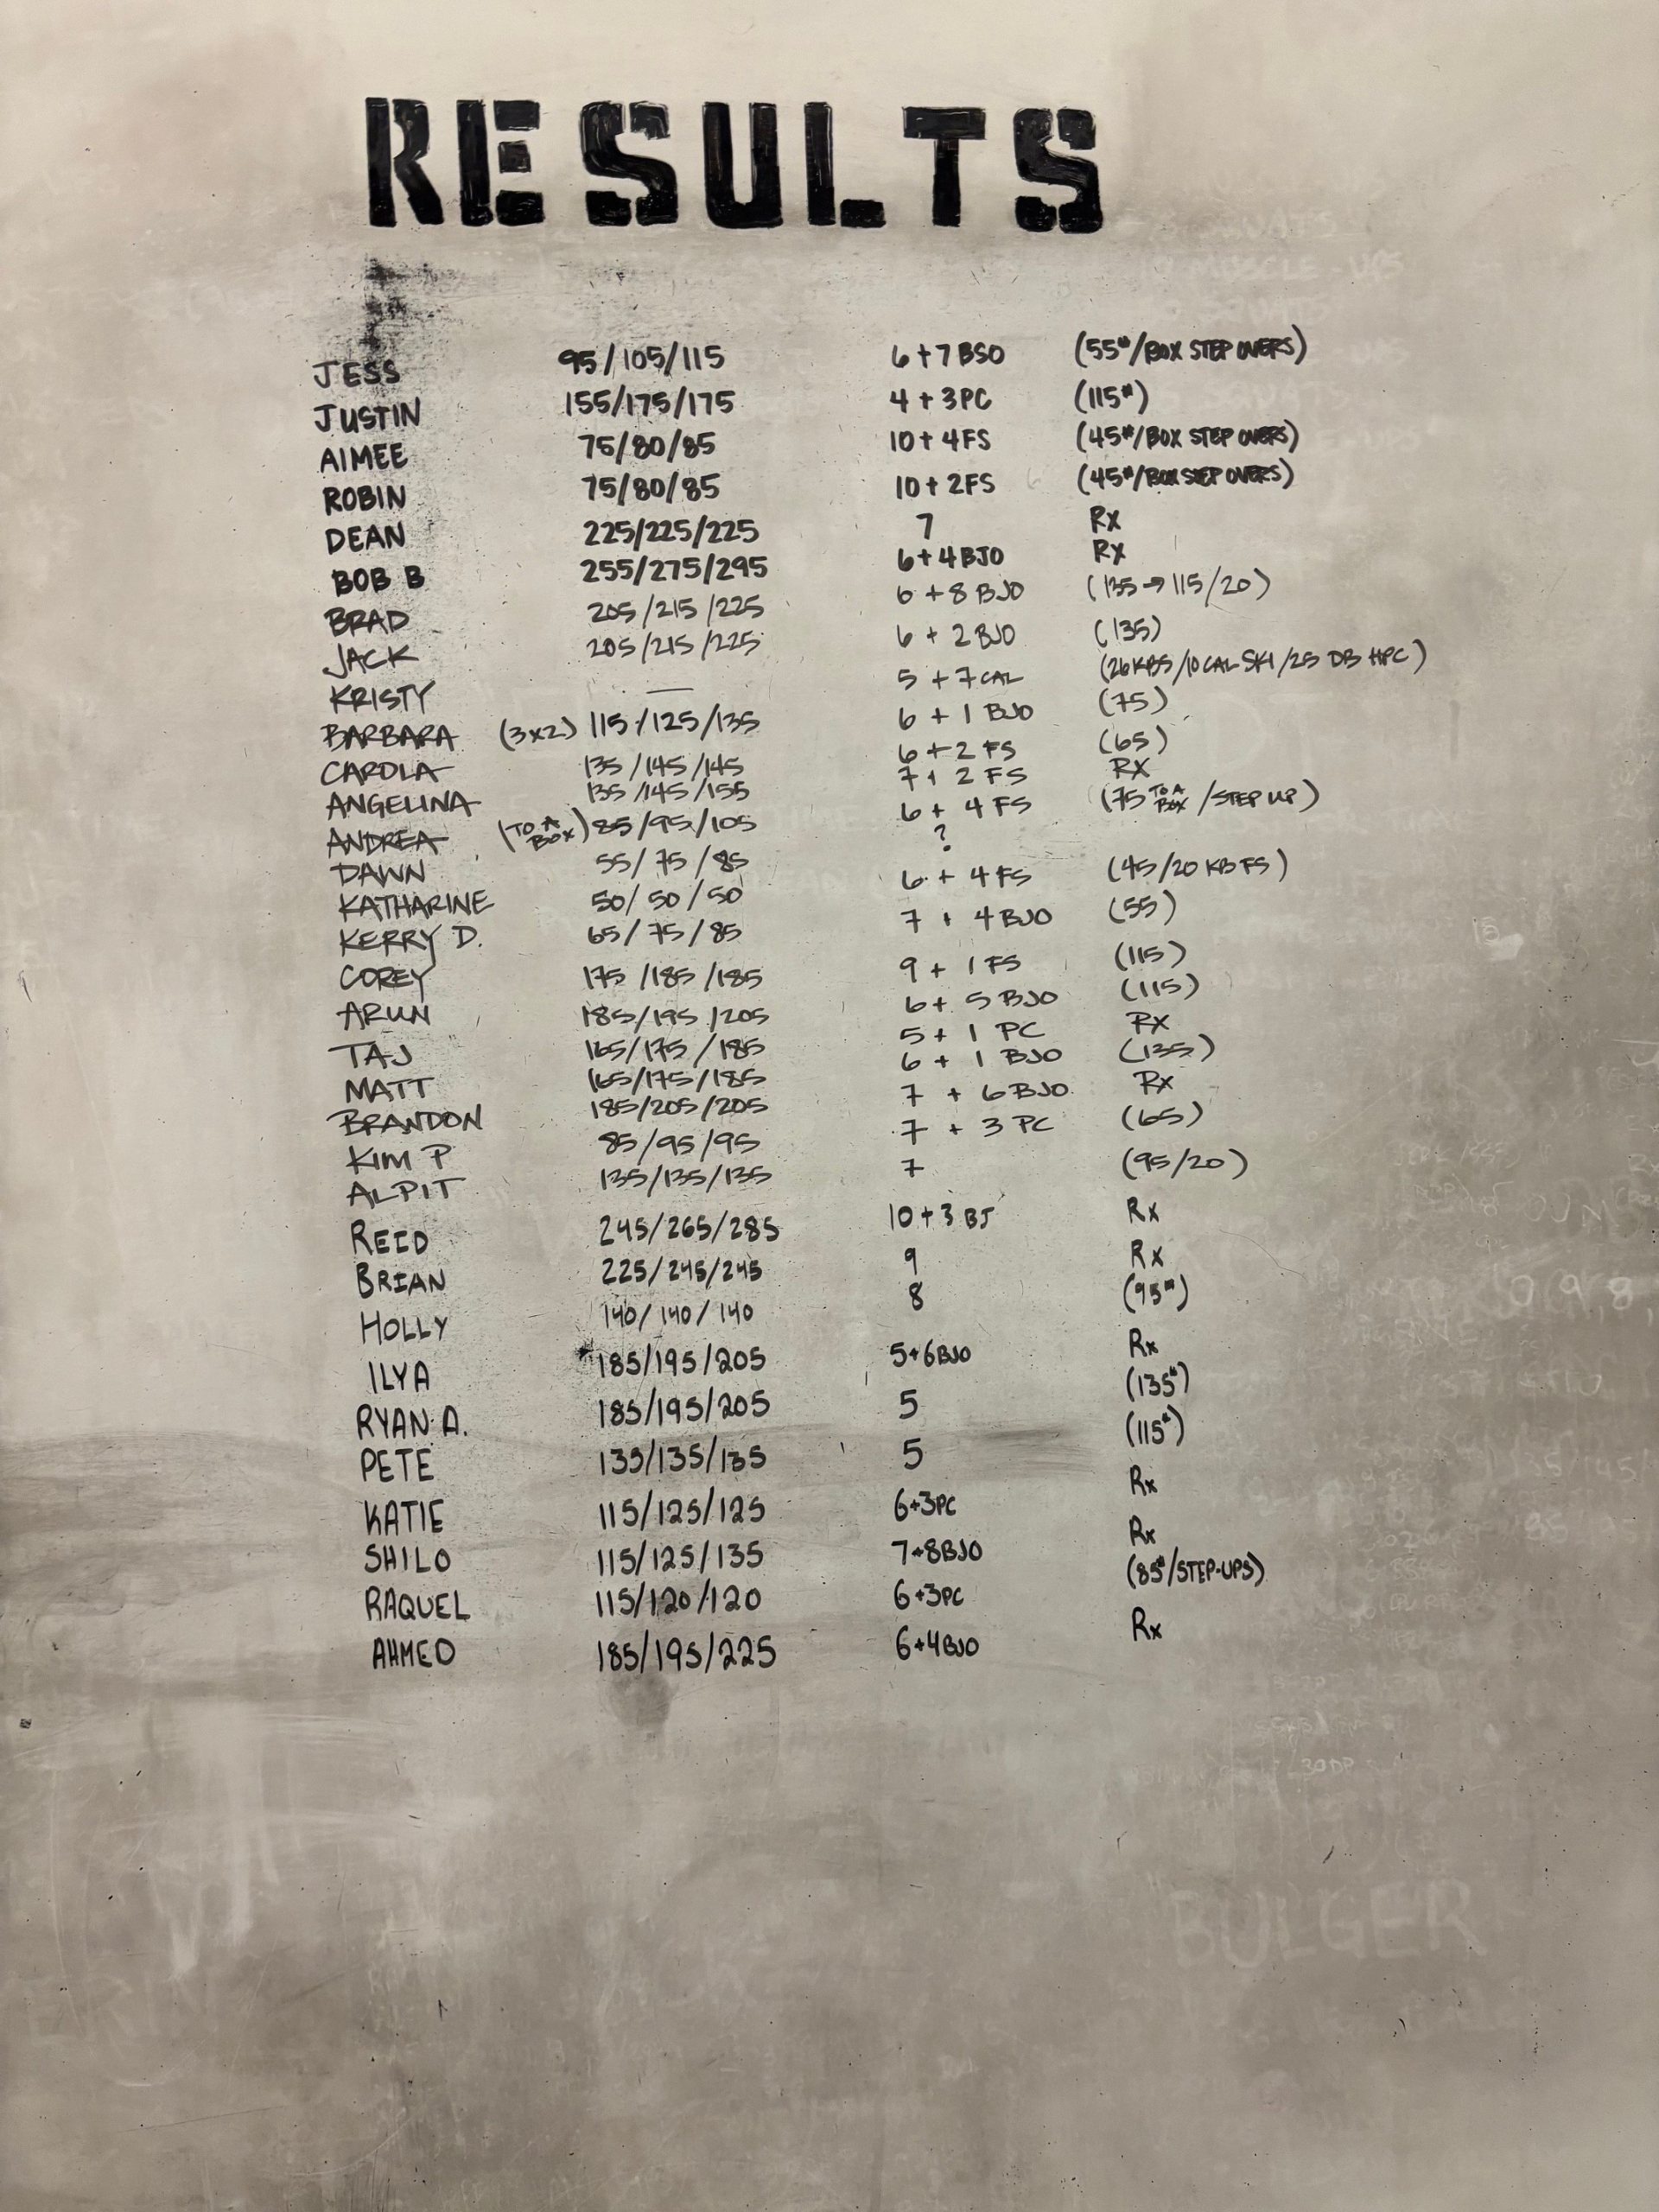 RESULTS
JESS 95/105/115 6+7BSO (55#/BOX STEP OVERS)
JUSTIN 155/175/175 4+3PC (115#)
AIMEE 75/80/85 10+4FS (45#/BOX STEP OVERS)
ROBIN 75/80/85 10+2FS (45#/BOX STEP OVERS)
DEAN 225/225/225 7 Rx
BOB B 255/275/295 6+4BJO Rx
BRAD 205/215/225 6+8 BJO (135→115/20)
JACK 205/215/225 6+2 BJO (135)
KRISTY — 5+7CAL (26KBS/10 CAL SKI/25 DB HPC)
BARBARA (3x2) 115/125/135 6+1 BJO (75)
CAROLA 135/145/145 6+2 FS (65)
ANGELINA 135/145/155 7+2 FS RX
ANDREA (TO A BOX) 85/95/105 6+4 FS (75 TO A BOX/STEP UP)
DAWN 55/75/85 ?
KATHARINE 50/50/50 6+4FS (45/20 KB FS)
KERRY D. 65/75/85 7+4BJO (55)
COREY 175/185/185 9+1 FS (115)
ARUN 185/195/205 6+5 BJO (115)
TAJ 165/175/185 5+1 PC RX
MATT 165/175/185 6+1 BJO (135)
BRANDON 185/205/205 7+6BJO Rx
KIM P 85/95/95 7+3 PC (65)
ALPIT 135/135/135 7 (95/20)
REID 245/265/285 10+3 BJ Rx
BRIAN 225/245/245 9 Rx
HOLLY 140/140/140 8 (95#)
ILYA 185/195/205 5+6BJO Rx
RYAN A. 185/195/205 5 (135#)
PETE 135/135/135 5 (115#)
KATIE 115/125/125 6+3PC Rx
SHILO 115/125/135 7+8BJO Rx
RAQUEL 115/120/120 6+3PC (85#/STEP-UPS)
AHMED 185/195/225 6+4BJO Rx
BULGER